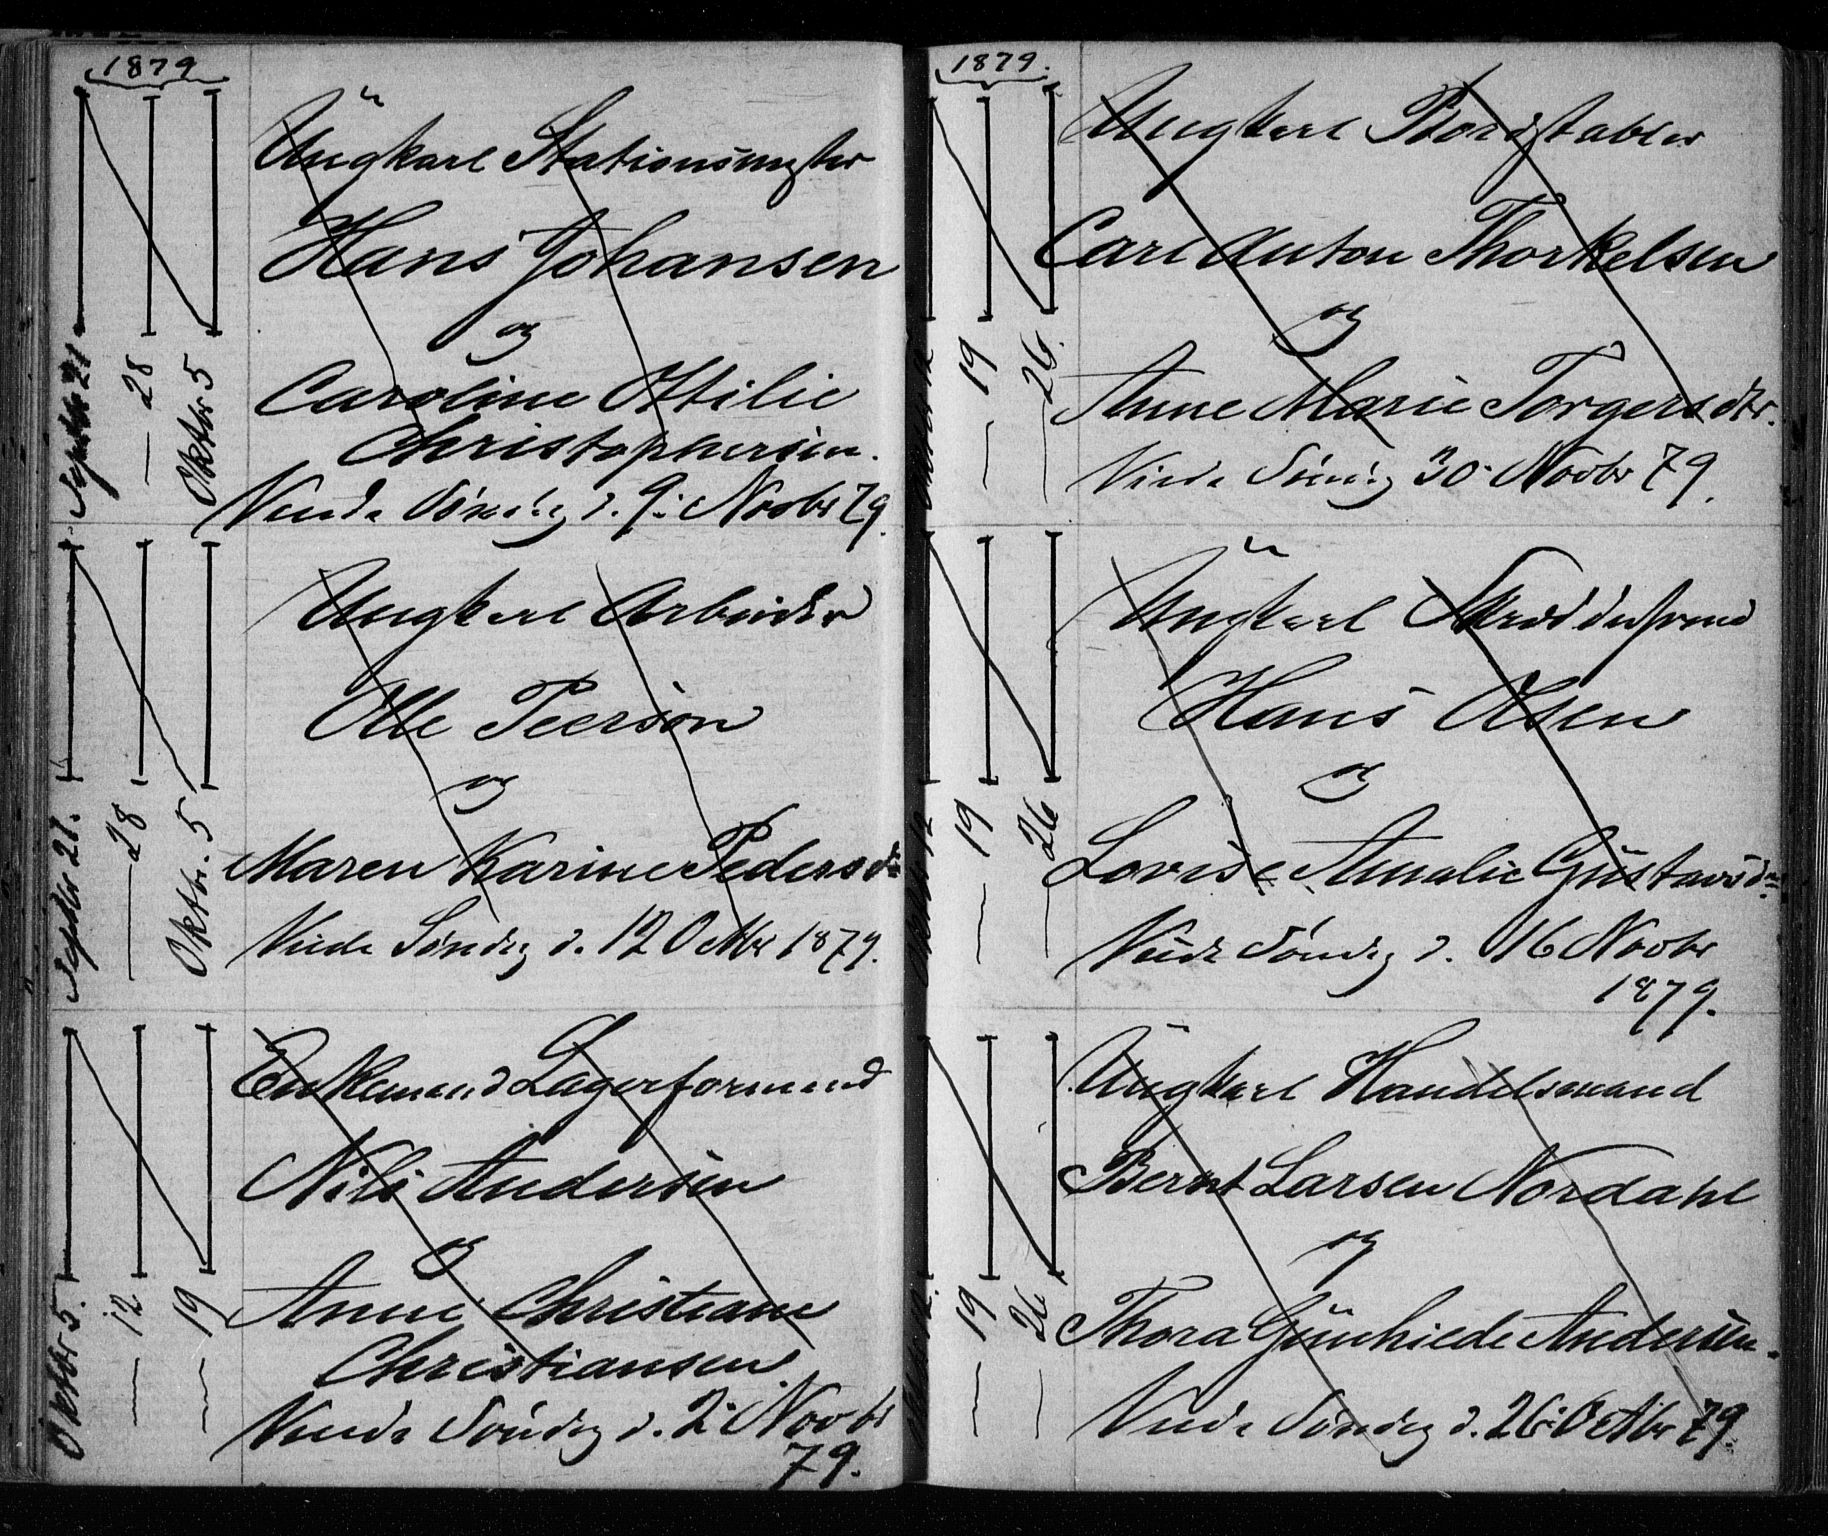 1879
Septbr 21
— 28
Oktbr 5
Ungkarl Stationsmester
Hans Johansen
og
Caroline Ottilie
Christophersen.
Viede Søndag d. 9: Novbr 79.
Septbr 21.
— 28
Oktbr. 5
Ungkarl Arbeider
Olle Peerson
og
Maren Karine Pedersdr
Viede Søndag d. 12 Octbr 1879.
Oktbr 5.
— 12
— 19
Enkemand Lagerformand
Nils Andersen
og
Anne Christiane
Christiansen.
Viede Søndag d. 2: Novbr
79.
1879.
Oktbr 12
— 19
— 26.
Ungkarl
Carl Anton Thorkelsen
og
Anne Marie Torgersdtr.
Viede Søndag 30 Novbr 79.
Oktbr 12
— 19
— 26
Ungkarl Skrædersvend
Hans Olsen
og
Lovise Amalie Gustavsdr
Viede Søndag d. 16 Novbr
1879.
Oktbr 12.
— 19
— 26
Ungkarl Handelsmand
Bernt Larsen Nordahl
og
Thora Gunhilde Andersen.
Viede Søndag d. 26: Octbr 79.